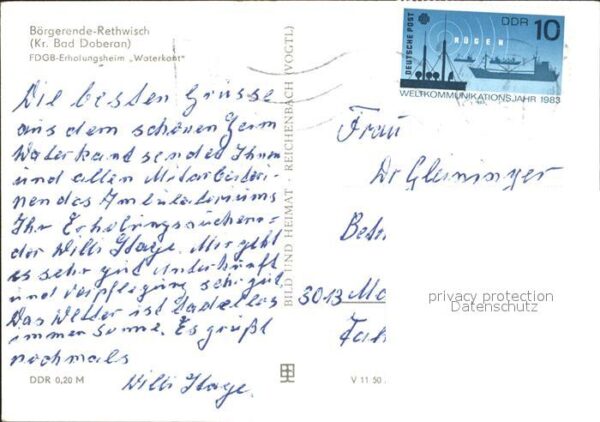 Börgerende-Rethwisch
(Kr. Bad Doberan)
FDGB-Erholungsheim „Waterkant"
Die besten Grüsse
aus dem schönen Heim
Waterkant sendet Ihnen
und allen Mitarbeiteri-
nen des Ambulatoriums
Ihr Erholungssuchen-
der Willi Hage. Mir geht
es sehr gut Unterkunft
und Verpflegung sehr gut
Das Wetter ist tadellos
immer Sonne. Es grüßt
nochmals
Willi Hage.
DDR 0,20 M
BILD UND HEIMAT · REICHENBACH (VOGTL)
V 11 50
DEUTSCHE POST
DDR 10
RÜGEN
WELTKOMMUNIKATIONSJAHR 1983
Frau
Dr Gleininger
Betr
3013 Ma
Fah
privacy protection
Datenschutz